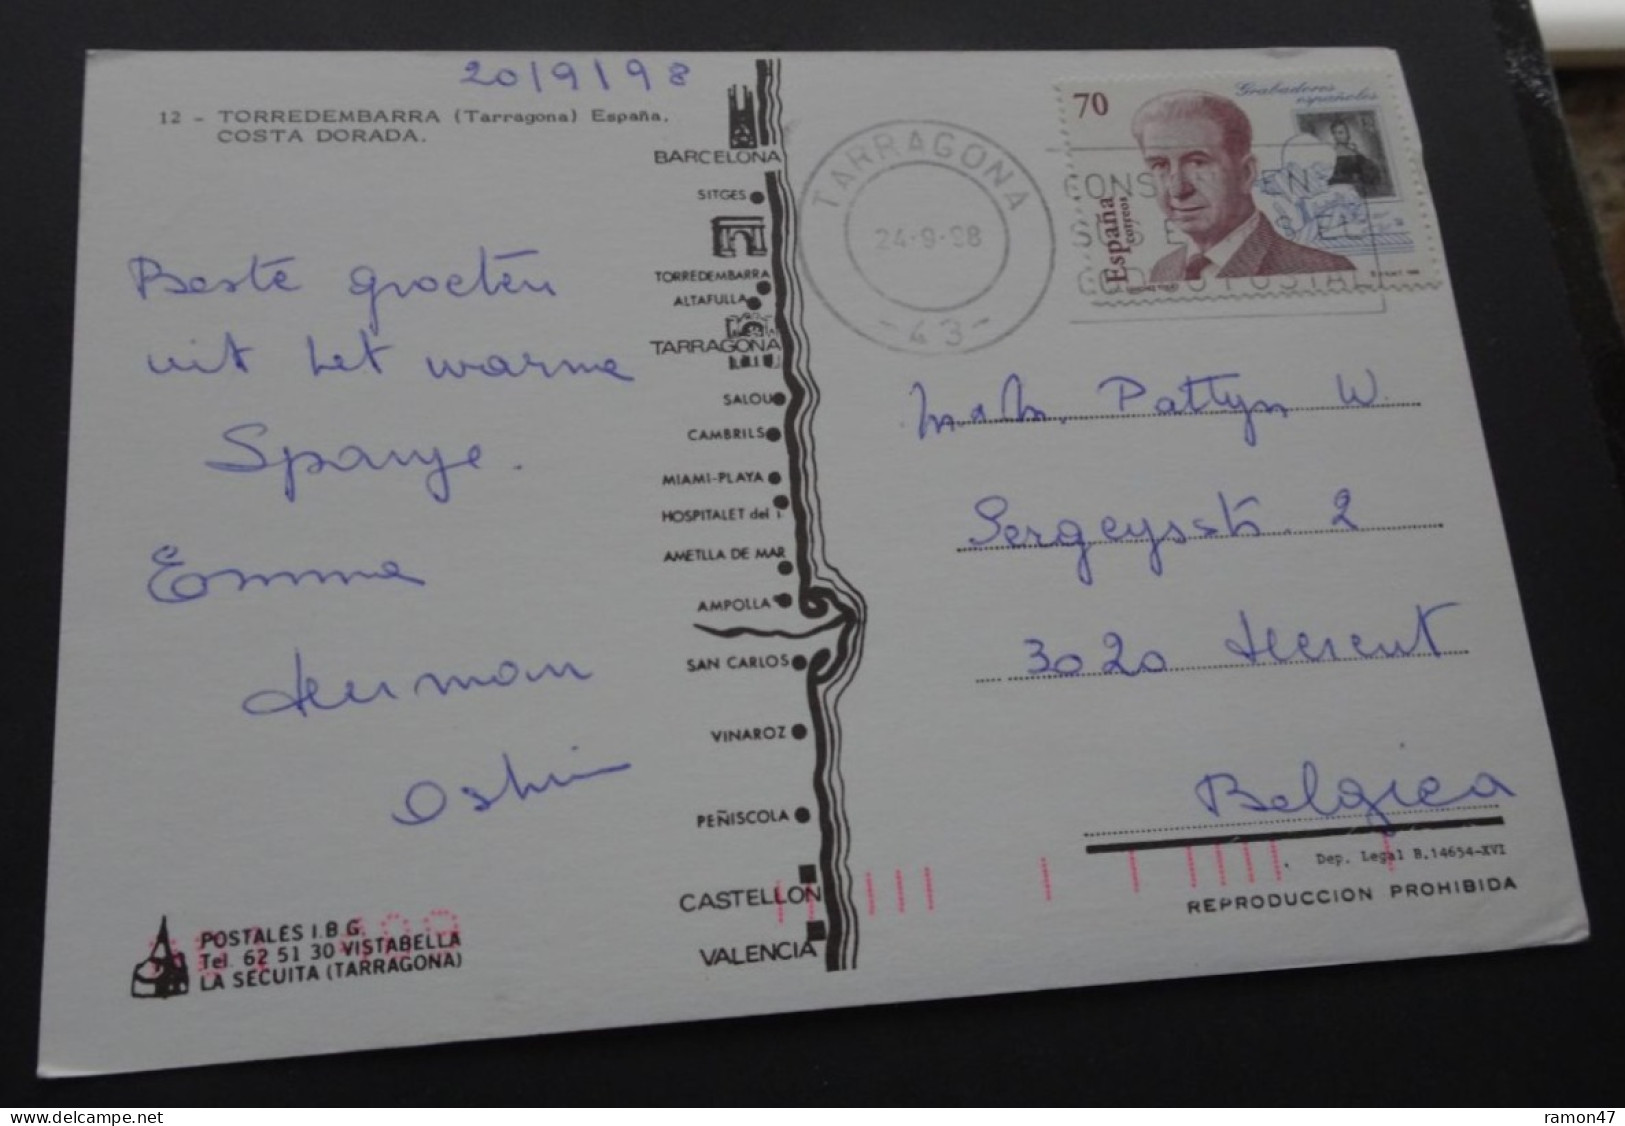 20/9/98
12 - TORREDEMBARRA (Tarragona) España.
COSTA DORADA.
Beste groeten
uit het warme
Spanje.
Emma
Herman
BARCELONA
SITGES
TORREDEMBARRA
ALTAFULLA
TARRAGONA
SALOU
CAMBRILS
MIAMI-PLAYA
HOSPITALET del I
AMETLLA DE MAR
AMPOLLA
SAN CARLOS
VINAROZ
PEÑISCOLA
CASTELLON
VALENCIA
POSTALES I.B.G.
Tel. 62 51 30 VISTABELLA
LA SECUITA (TARRAGONA)
TARRAGONA
24-9-98
- 43 -
70
Grabadores
españoles
España
correos
CODIGO POSTAL
Pattyn W.
2
3020 Herent
Belgica
Dep. Legal B.14654-XVI
REPRODUCCION PROHIBIDA
ramon47